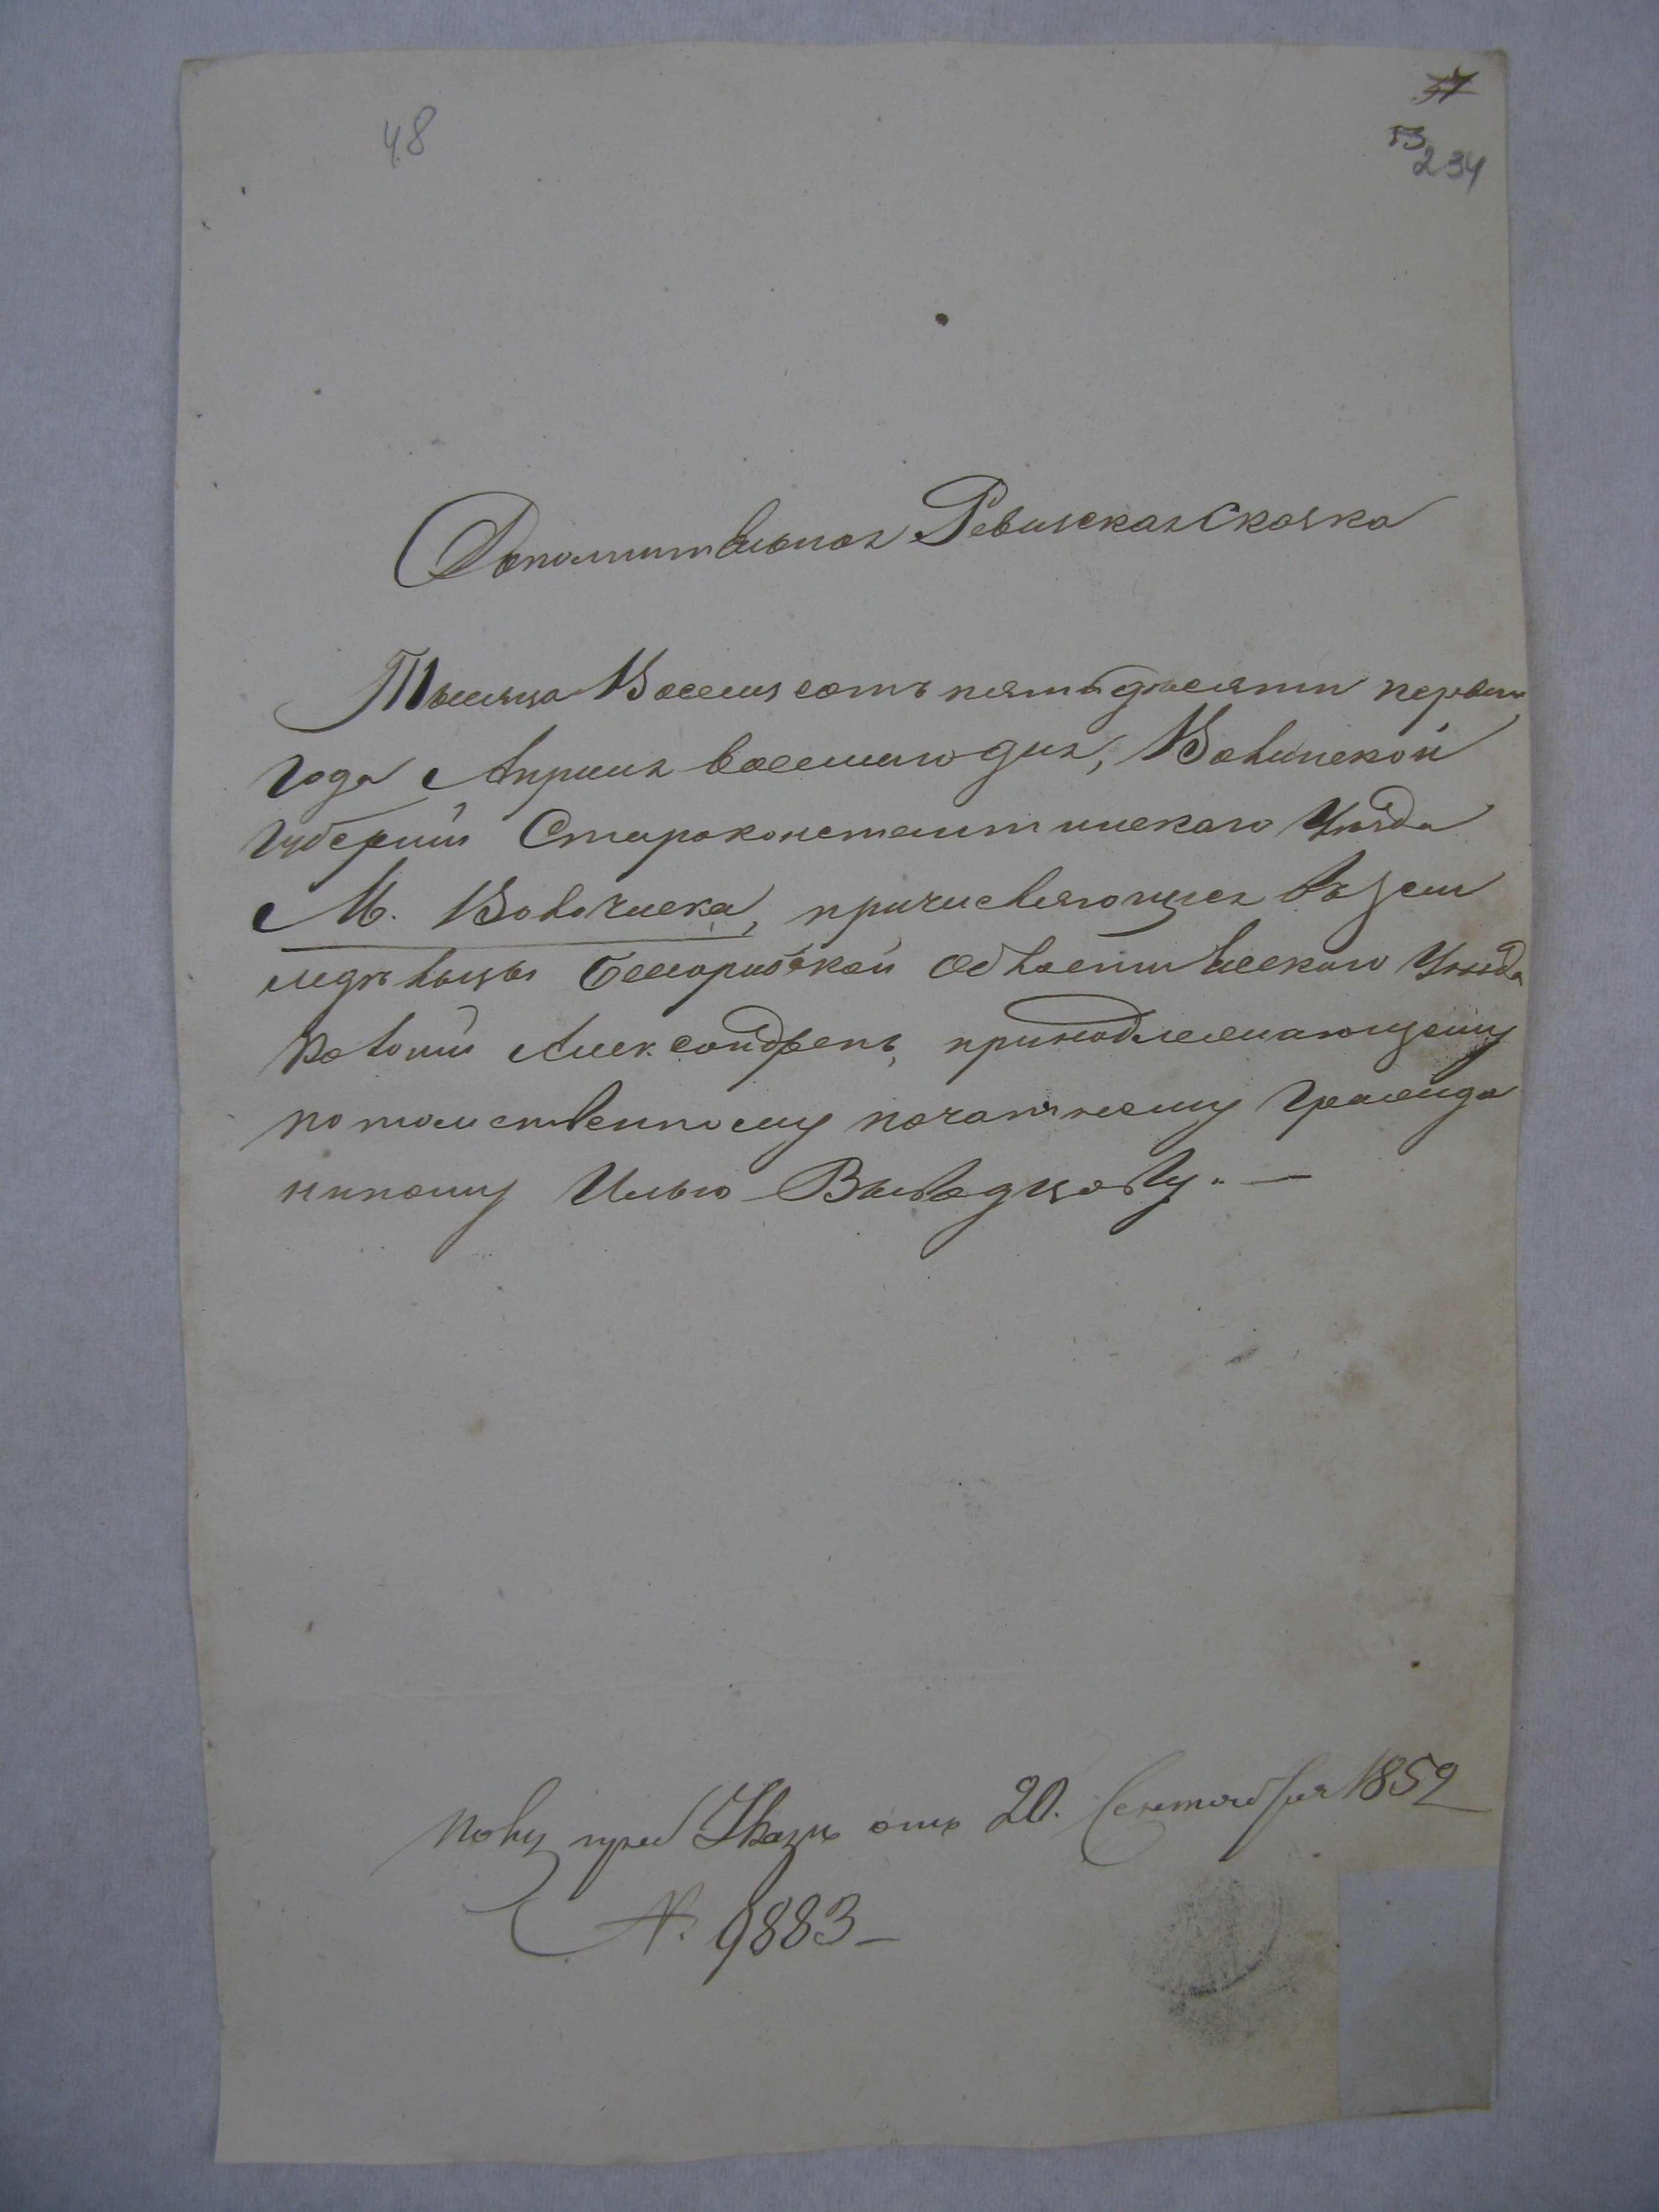 48
37
53
234
Дополнительная Ревизская Сказка
Тысяча Восемь сотъ пятьдесятъ перваго
года Апреля восьмаго дня, Волынской
Губернии Староконстантиновскаго Уѣзда
М. Волочиска, причисляющися въ зем
ледѣльцы Бессарабской Области Ясскаго Уѣзда
Колонии Александрень, принадлежающему
потомственному почотному Гражда
ниному Илью Выводцову. —
Получ. Указъ отъ 20. Сентября 1852
N. 9883 —